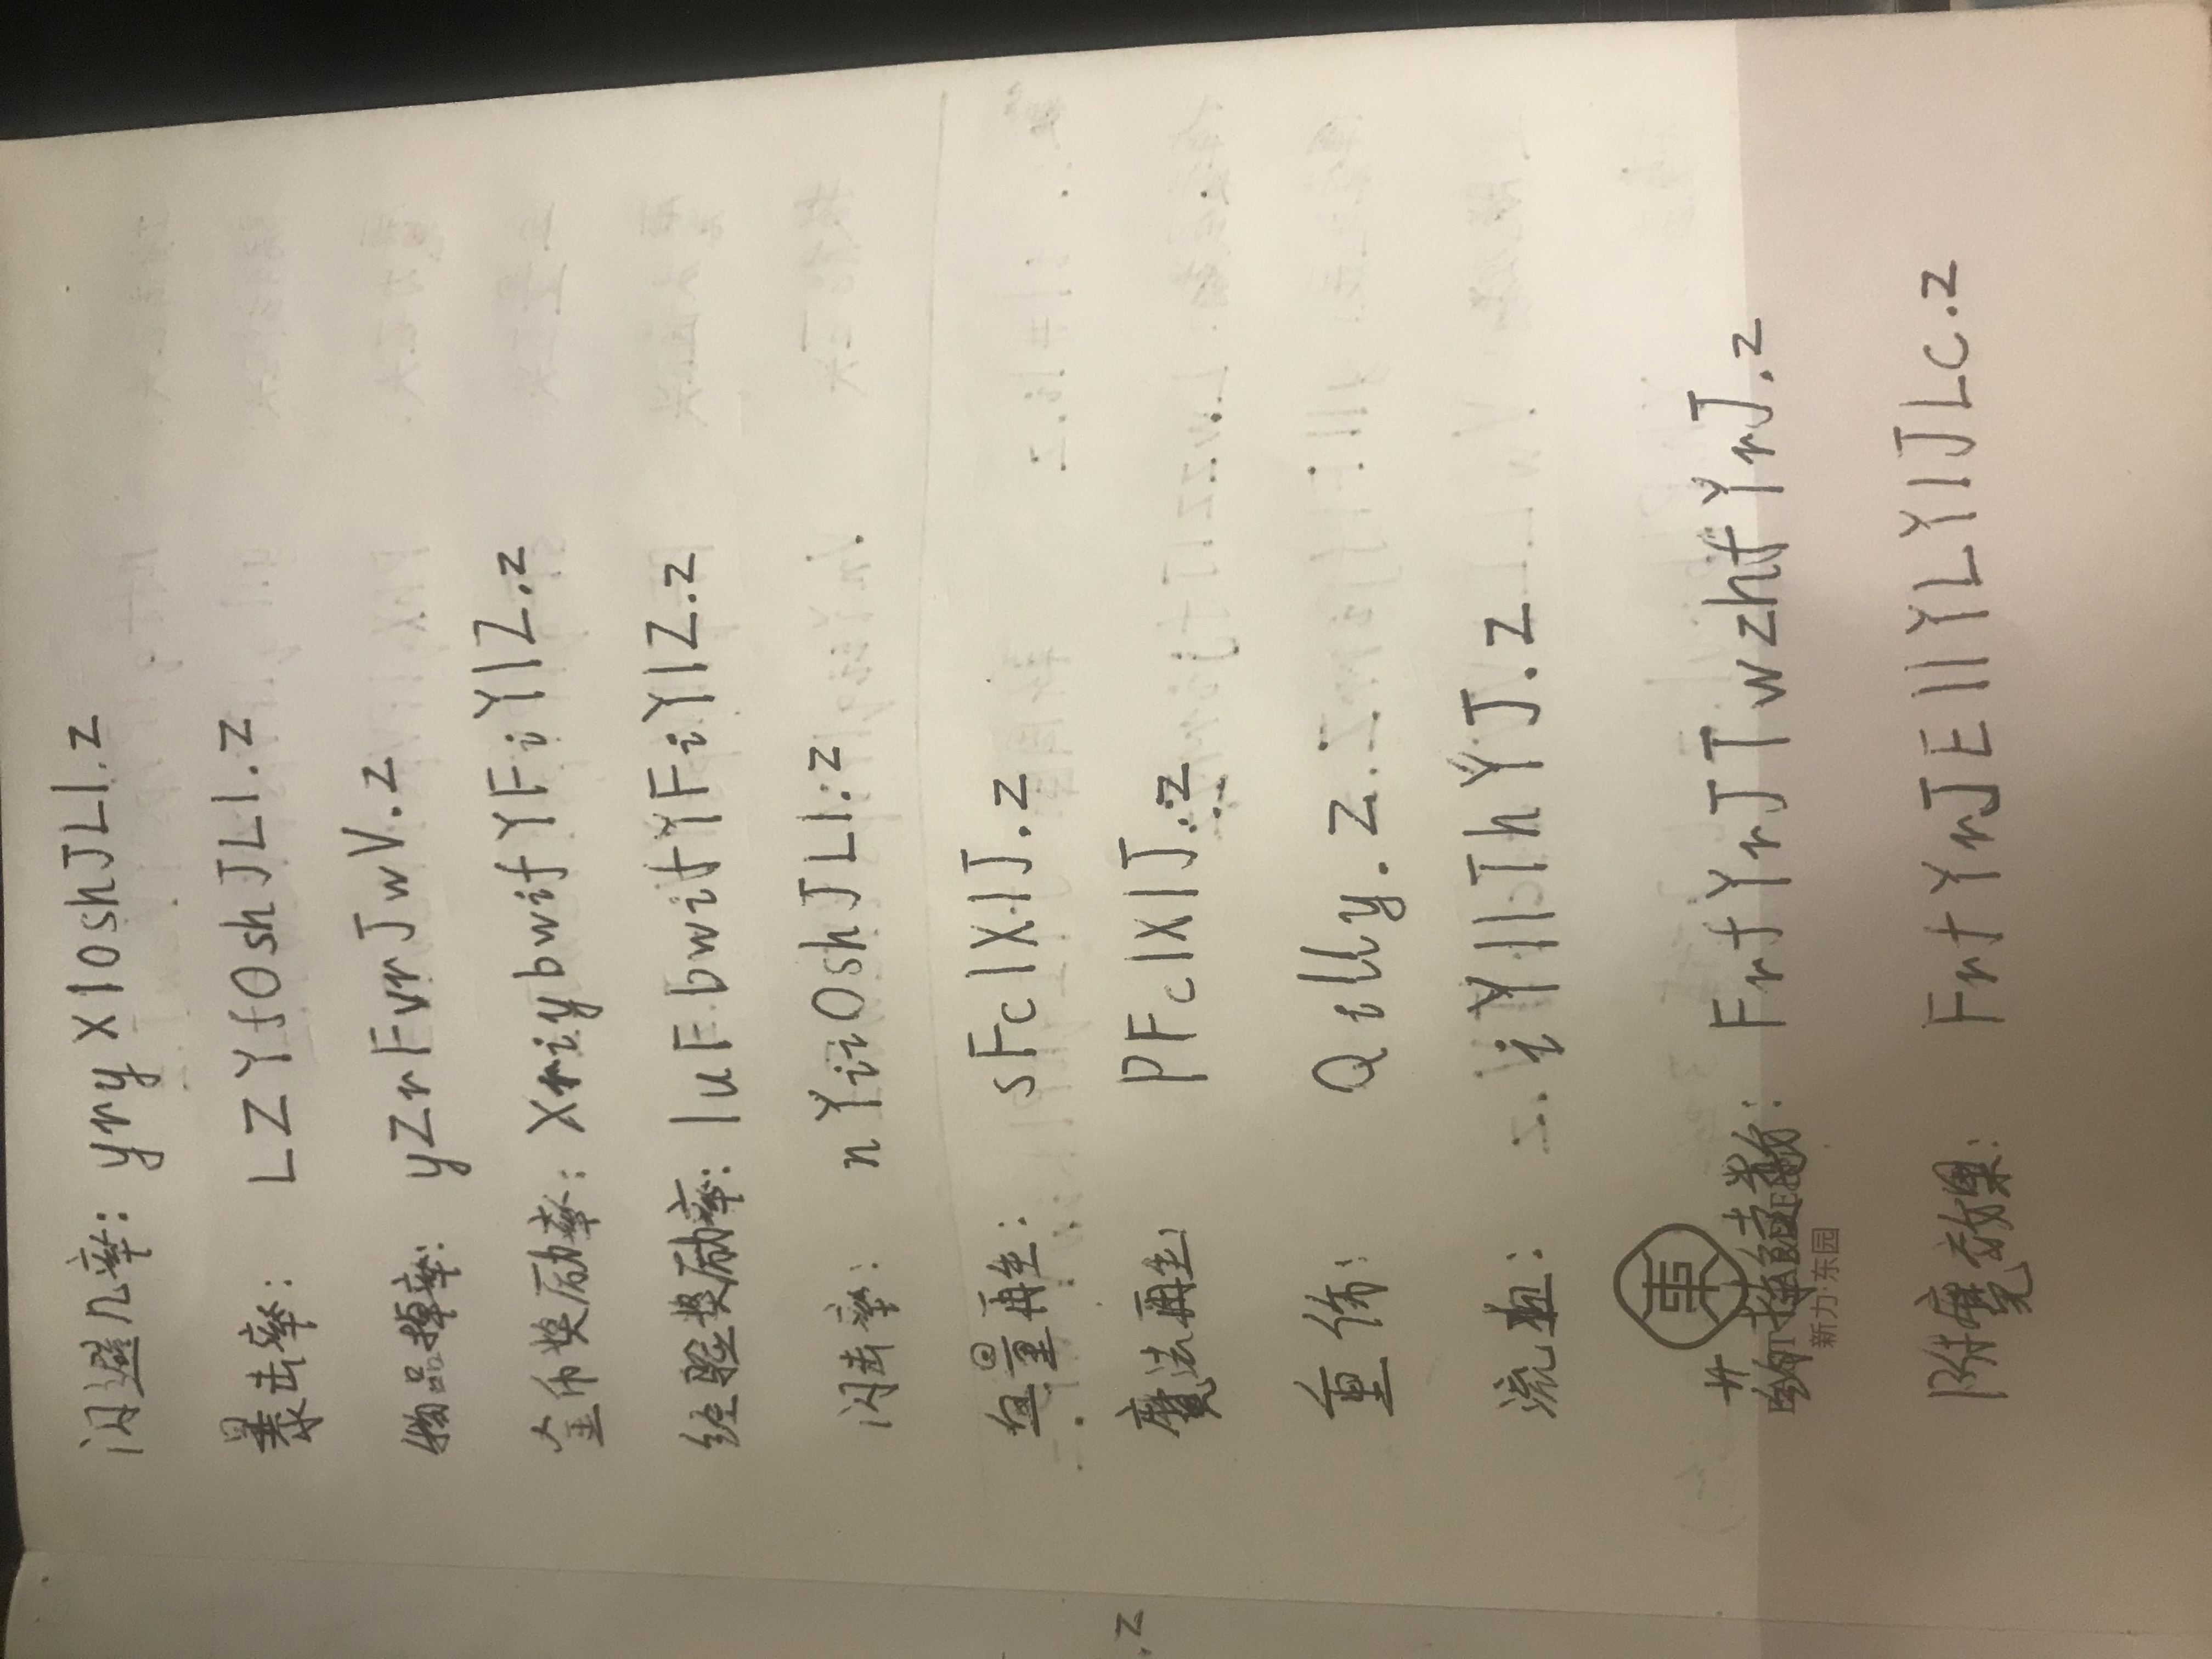 闪避几率: yryX1oshJLl.z
暴击率: LZYfOshJLl.z
物品掉率: yZrFvrJwV.z
金币奖励率: XriybwifYFiYlZ.z
经验奖励率: luFbwifYFiYlZ.z
闪击率: nYiiOshJLl.z
血量再生: sFclXlJ.z
魔法再生: PFclXlJ.z
重伤: Qilly.z
流血: iYllThYJ.z
FrfYrJTwzhfYrJ.z
新力·东园
附魔效果: FrfYrJEllYLYlJLc.z
.z